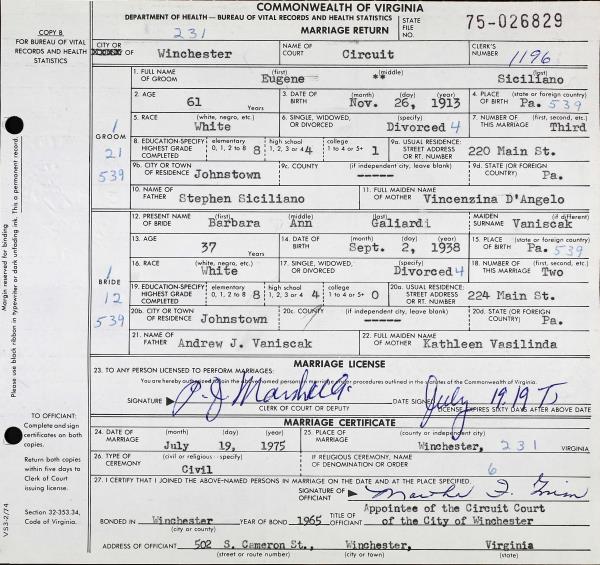 COMMONWEALTH OF VIRGINIA
DEPARTMENT OF HEALTH — BUREAU OF VITAL RECORDS AND HEALTH STATISTICS
MARRIAGE RETURN
STATE FILE NO. 75-026829
COPY B
FOR BUREAU OF VITAL RECORDS AND HEALTH STATISTICS
231
CITY OR OF Winchester NAME OF COURT Circuit CLERK'S NUMBER 1196
1. FULL NAME OF GROOM (first) Eugene (middle) ** (last) Siciliano
2. AGE 61 Years 3. DATE OF BIRTH (month) (day) (year) Nov. 26, 1913 4. PLACE OF BIRTH (state or foreign country) Pa. 539
5. RACE (white, negro, etc.) White 6. SINGLE, WIDOWED, OR DIVORCED Divorced 4 7. NUMBER OF THIS MARRIAGE (first, second, etc.) Third
GROOM 1 21 539
8. EDUCATION-SPECIFY HIGHEST GRADE COMPLETED elementary 0, 1, 2 to 8 8 high school 1 to 4 4 college 1 to 4 or 5+ 1 9a. USUAL RESIDENCE: STREET ADDRESS OR RT. NUMBER 220 Main St.
9b. CITY OR TOWN OF RESIDENCE Johnstown 9c. COUNTY (if independent city, leave blank) ----- 9d. STATE (OR FOREIGN COUNTRY) Pa.
10. NAME OF FATHER Stephen Siciliano 11. FULL MAIDEN NAME OF MOTHER Vincenzina D'Angelo
12. PRESENT NAME OF BRIDE (first) Barbara (middle) Ann (last) Galiardi MAIDEN SURNAME (if different) Vaniscak
13. AGE 37 Years 14. DATE OF BIRTH (month) (day) (year) Sept. 2, 1938 15. PLACE OF BIRTH (state or foreign country) Pa. 539
16. RACE (white, negro, etc.) White 17. SINGLE, WIDOWED, OR DIVORCED Divorced 4 18. NUMBER OF THIS MARRIAGE (first, second, etc.) Two
BRIDE 1 12 539
19. EDUCATION-SPECIFY HIGHEST GRADE COMPLETED elementary 0, 1, 2 to 8 8 high school 1 to 4 4 college 1 to 4 or 5+ 0 20a. USUAL RESIDENCE: STREET ADDRESS OR RT. NUMBER 224 Main St.
20b. CITY OR TOWN OF RESIDENCE Johnstown 20c. COUNTY (if independent city, leave blank) ----- 20d. STATE (OR FOREIGN COUNTRY) Pa.
21. NAME OF FATHER Andrew J. Vaniscak 22. FULL MAIDEN NAME OF MOTHER Kathleen Vasilinda
Margin reserved for binding
Please use black ribbon in typewriter or dark unfading ink. This is a permanent record.
MARRIAGE LICENSE
23. TO ANY PERSON LICENSED TO PERFORM MARRIAGES:
You are hereby authorized to join the above-named persons in marriage under procedures outlined in the statutes of the Commonwealth of Virginia.
SIGNATURE
CLERK OF COURT OR DEPUTY July 19 1975 LICENSE EXPIRES SIXTY DAYS AFTER ABOVE DATE
TO OFFICIANT:
Complete and sign certificates on both copies.
Return both copies within five days to Clerk of Court issuing license.
Section 32-353.34, Code of Virginia.
VS3-2/74
MARRIAGE CERTIFICATE
24. DATE OF MARRIAGE (month) (day) (year) July 19, 1975 25. PLACE OF MARRIAGE (county or independent city) Winchester, 231 VIRGINIA
26. TYPE OF CEREMONY (civil or religious - specify) Civil IF RELIGIOUS CEREMONY, NAME OF DENOMINATION OR ORDER 6
27. I CERTIFY THAT I JOINED THE ABOVE-NAMED PERSONS IN MARRIAGE ON THE DATE AND AT THE PLACE SPECIFIED.
SIGNATURE OF OFFICIANT
BONDED IN Winchester (city or county) YEAR OF BOND 1965 TITLE OF OFFICIANT Appointee of the Circuit Court of the City of Winchester
ADDRESS OF OFFICIANT 502 S. Cameron St., Winchester, Virginia
(street or route number) (city or town) (state)